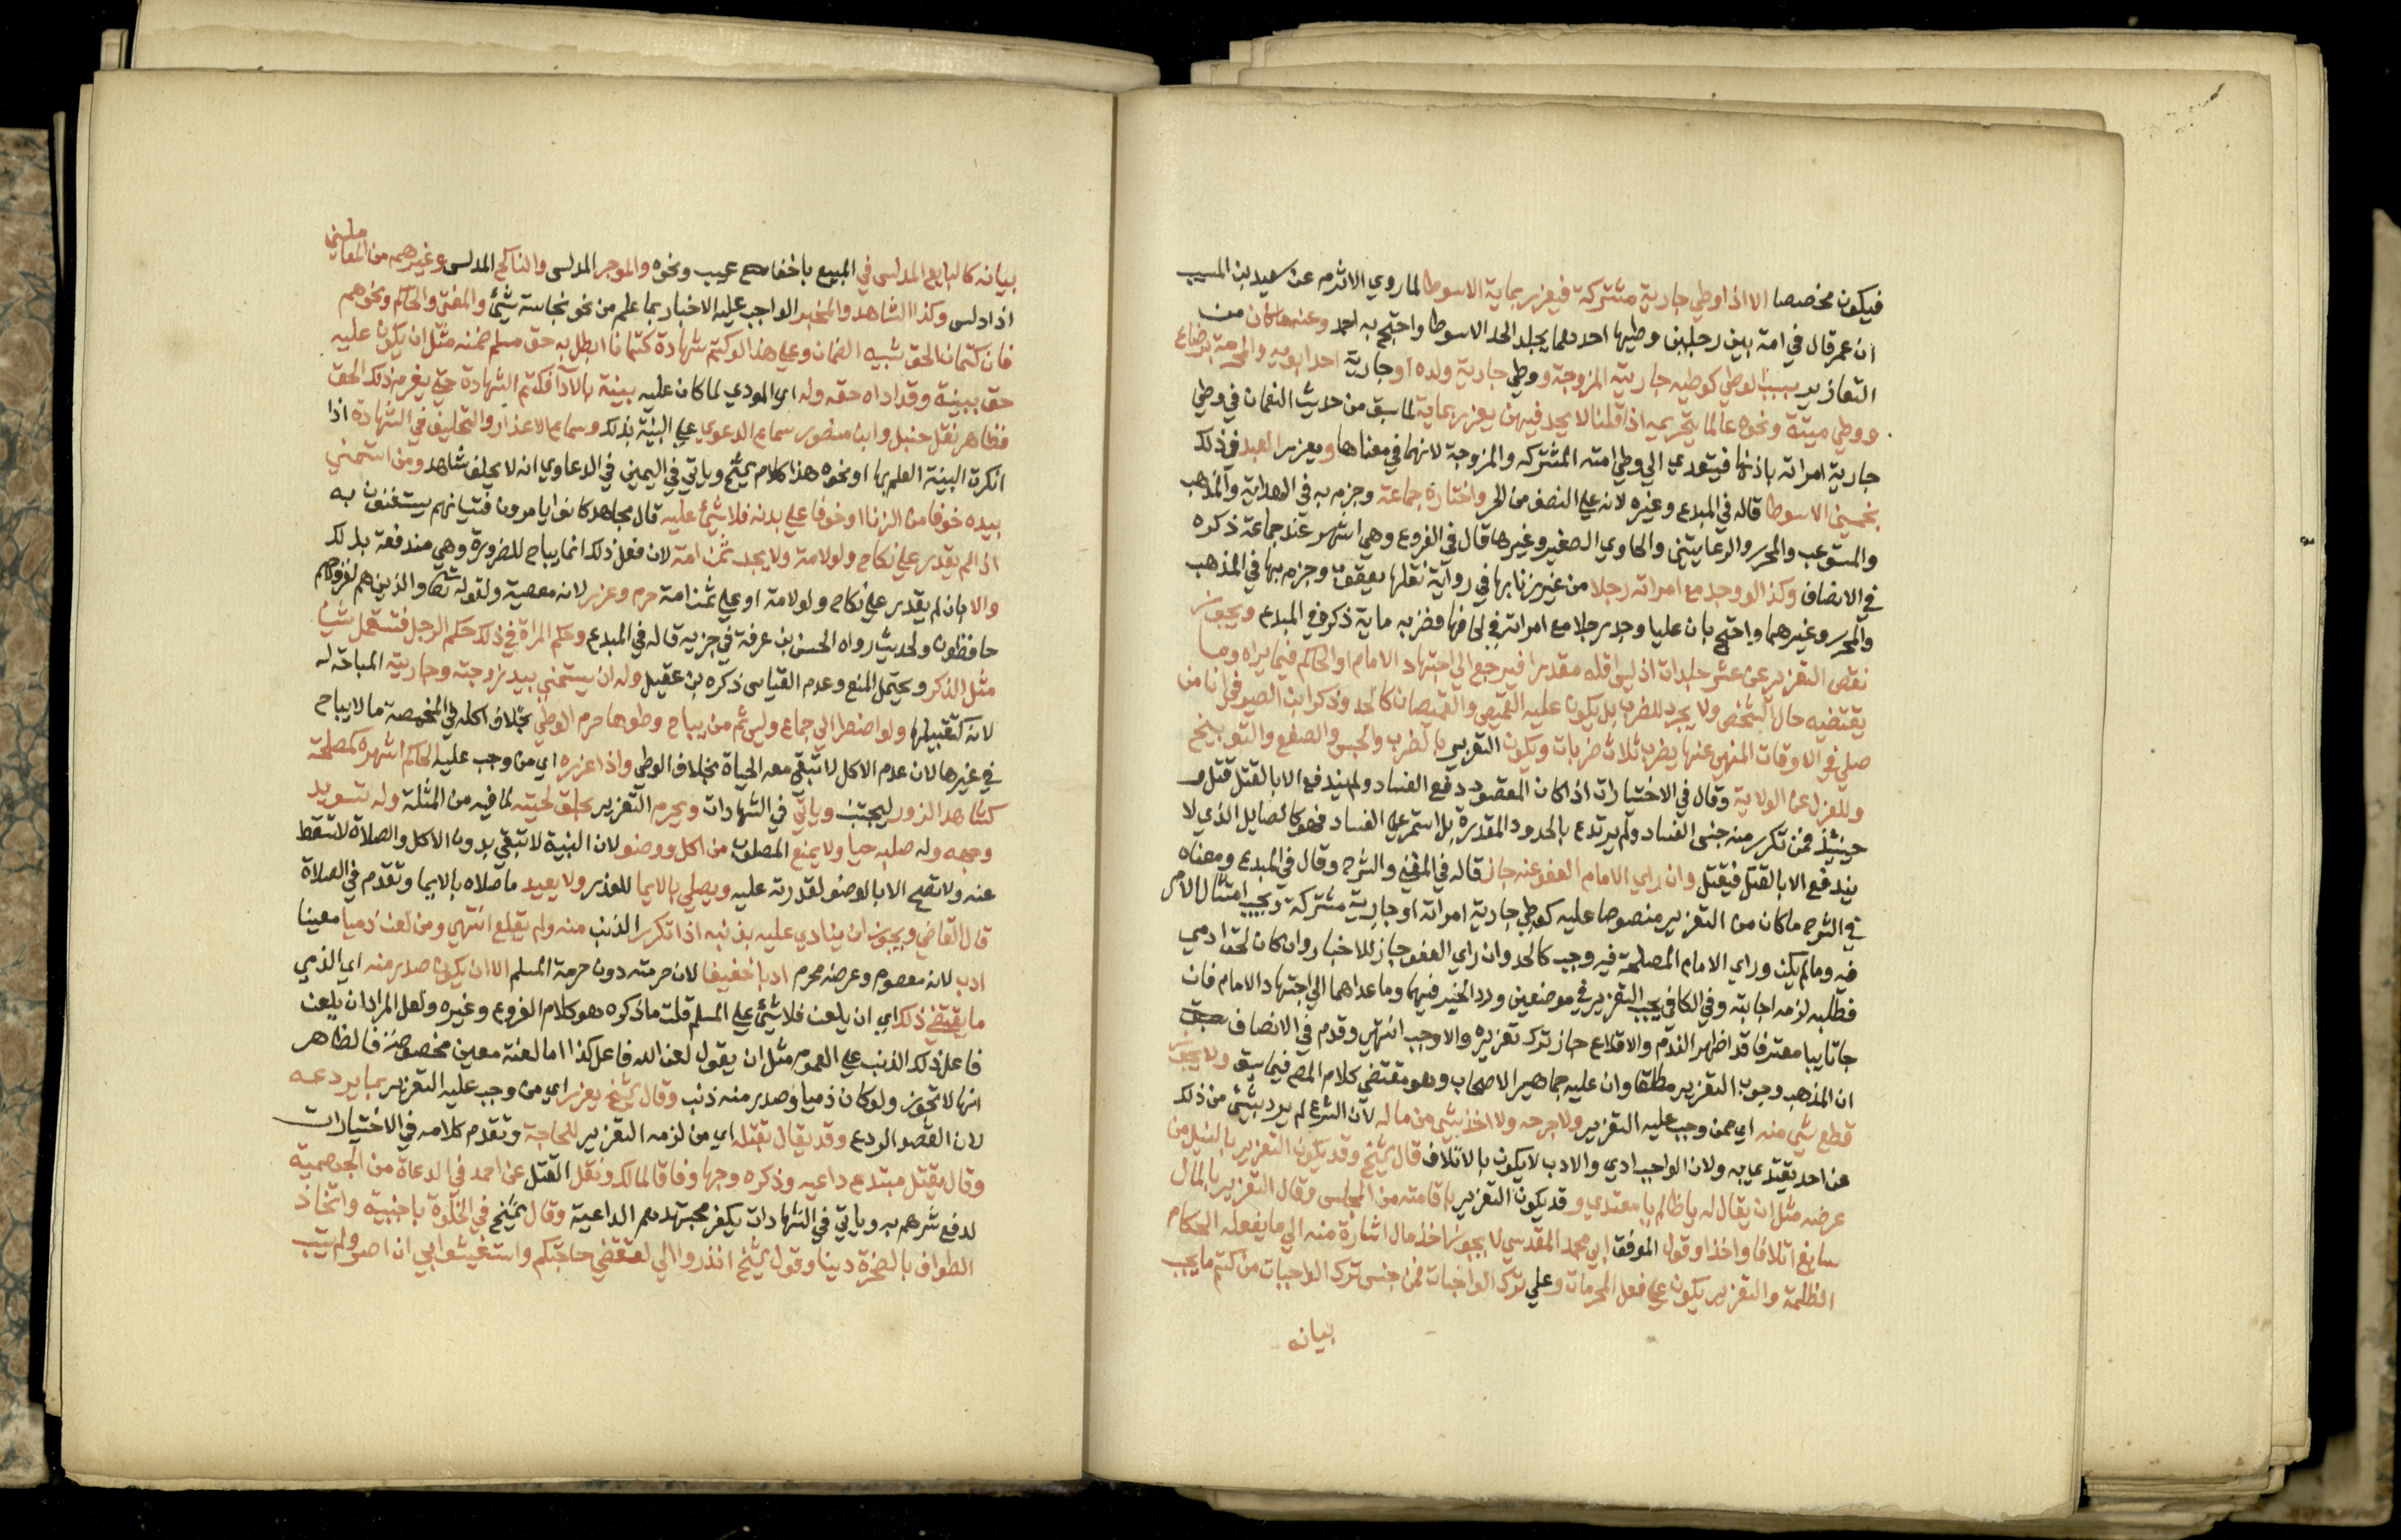 فيكون مخصصا الا اذا وطي جارية مشتركة فيعزر بماية الا سوطا لما روي الاثرم عن سعيد بن المسيب
ان عمر قال في امة بين رجلين وطيها احدهما يجلد الحد الا سوطا واحتج به احمد وعنه ما كان من
التعازير بسبب الوطي كوطيه جاريته المزوجة ووطي جارية ولده او جارية احد ابويه والمحرمة برضاع
ووطي ميتة ونحوه عالما بتحريمه اذا قلنا لا يحد فيهن يعزر بماية لما سبق من حديث النعمان في وطي
جارية امراته باذنها فيتعدي الي وطي امته المشتركه والمزوجة لانهما في معناها ويعزر العبد في ذلك
بخمسين الا سوطا قاله في المبدع وغيره لانه علي النصف من الحر واختاره جماعة وجزم به في الهداية والمذهب
والمستوعب والمحرر والرعايتين والحاوي الصغير وغيرها قال في الفروع وهي اشهر عند جماعة ذكره
في الانصاف وكذا لو وجد مع امراته رجلا من غير زنا بها في رواية نقلها يعقوب وجزم بها في المذهب
والمحرر وغيرهما واحتج بان عليا وجد رجلا مع امراته في لحافها فضربه ماية ذكره في المبدع ويجوز
نقص التعزير عن عشر جلدات اذ ليس اقله مقدرا فيرجع الي اجتهاد الامام او الحاكم فيما يراه وما
يقتضيه حال الشخص ولا يجرد للضرب بل يكون عليه القميص والقميصان كالحد وذكر ابن الصيرفي ان من
صلي في الاوقات المنهي عنها يضرب ثلاث ضربات ويكون التعزير بالضرب والحبس والصفع والتوبيخ
وللعزل عن الولاية وقال في الاختيارات اذا كان المقصود دفع الفساد ولم يندفع الا بالقتل قتل و
حينيذ فمن تكرر منه جنس الفساد ولم يرتدع بالحدود المقدرة بل استمر علي الفساد فهو كالصايل الذي لا
يندفع الا بالقتل فيقتل وان راي الامام العفو عنه جاز قاله في المغني والشرح وقال في المبدع ومعناه
في الشرح ما كان من التعزير منصوصا عليه كوطي جارية امراته او جارية مشتركة ويجب امتثال الامر
فيه وما لم يكن وراي الامام المصلحة فيه وجب كالحد وان راي العفو جاز للاخبار وان كان لحق ادمي
فطلبه لزمه اجابته وفي الكافي يجب التعزير في موضعين ورد الخبر فيهما وما عداهما الي اجتهاد الامام فان
جا تايبا معترفا قد اظهر الندم والاقلاع جاز ترك تعزيره والا وجب انتهي وقدم في الانصاف
ان المذهب وجوب التعزير مطلقا وان عليه جماهير الاصحاب وهو مقتضي كلام المص فيما سبق ولا يجوز
قطع شي منه اي ممن وجب عليه التعزير ولا جرحه ولا اخذ شي من ماله لان الشرع لم يرد بشي من ذلك
عن احد يقتدي به ولان الواجب ادب والادب لا يكون بالاتلاف قال الشيخ وقد يكون التعزير بالنيل من
عرضه مثل ان يقال له يا ظالم يا معتدي وقد يكون التعزير باقامته من المجلس وقال التعزير بالمال
سايغ اتلافا واخذا وقول الموفق ابي محمد المقدسي لا يجوز اخذ مال اشارة منه الي ما يفعله الحكام
الظلمة والتعزير يكون علي فعل المحرمات وعلي ترك الواجبات فمن جنس ترك الواجبات من كتم ما يجب
بيانه
بيانه كالبايع المدلس في المبيع باخفا عيب ونحوه والموجر المدلس والناكح المدلس وغيرهم من المعاملين
اذا دلس وكذا الشاهد والمخبر الواجب عليه الاخبار بما علم من نحو نجاسة شي والمفتي والحاكم ونحوهم
فان كتمان الحق شبيه الضمان وعلي هذا لو كتم شهادة كتمانا ابطل به حق مسلم ضمنه مثل ان يكون عليه
حق ببينة وقد اداه حقه وله اي المودي لما كان عليه بينة بالادا فكتم الشهادة حتي يغرم ذلك الحق
فظاهر نقل حنبل وابن منصور سماع الدعوي علي البينة بذلك وسماع الاعذار والتحليف في الشهادة اذا
انكرت البينة العلم بها او نحوه هذا كلام الشيخ وياتي في اليمين في الدعاوي انه لا يحلف شاهد ومن استمني
بيده خوفا من الزنا او خوفا علي بدنه فلا شي عليه قال مجاهد كانوا يامرون فتيانهم يستغنون به
اذا لم يقدر علي نكاح ولو لامة ولا يجد ثمن امة لان فعل ذلك انما يباح للضرورة وهي مندفعة بذلك
والا بان لم يقدر علي نكاح ولو لامة او علي ثمن امة حرم وعزر لانه معصية ولقوله تعالي والذين هم لفروجهم
حافظون ولحديث رواه الحسن بن عرفة في جزيه قاله في المبدع وحكم المراة في ذلك حكم الرجل فتستعمل شيا
مثل الذكر ويحتمل المنع وعدم القياس ذكره بن عقيل وله ان يستمني بيد زوجته وجاريته المباحة له
لانه كتقبيلها ولو اضطر الي جماع وليس ثم من يباح وطوها حرم الوطي بخلاف اكله في المخمصة ما لا يباح
في غيرها لان عدم الاكل لا تبقي معه الحياة بخلاف الوطي واذا عزره اي من وجب عليه الحاكم اشهره لمصلحة
كشاهد الزور ليجتنب وياتي في الشهادات ويحرم التعزير بحلق لحيته لما فيه من المثلة وله تسويد
وجهه وله صلبه حيا ولا يمنع المصلوب من اكل ووضو لان البنية لا تبقي بدون الاكل والصلاة لا تسقط
عنه ولا تصح الا بالوضو لقدرته عليه ويصلي بالايما للعذر ولا يعيد ما صلاه بالايما وتقدم في الصلاة
قال القاضي ويجوز ان ينادي عليه بذنبه اذا تكرر الذنب منه ولم يقلع انتهي ومن لعن ذميا معينا
ادب لانه معصوم وعرضه محرم ادبا خفيفا لان حرمته دون حرمة المسلم الا ان يكون صدر منه اي الذمي
ما يقتضي ذلك اي ان يلعن فلا شي علي المسلم قلت ما ذكره هو كلام الفروع وغيره ولعل المراد ان يلعن
فاعل ذلك الذنب علي العموم مثل ان يقول لعن الله فاعل كذا اما لعنة معين مخصوصه فالظاهر
انها لا تجوز ولو كان ذميا وصدر منه ذنب وقال الشيخ يعزر اي من وجب عليه التعزير بما يردعه
لان القصد الردع وقد يقال بقتله اي من لزمه التعزير للحاجة وتقدم كلامه في الاختيارات
وقال يقتل مبتدع داعيه وذكره وجها وفاقا لمالك ونقل القتل عن احمد في الدعاة من الجهمية
لدفع شرهم به وياتي في الشهادات يكفر مجتهدهم الداعية وقال الشيخ في الخلوة باجنبية واتخاذ
الطواف بالصخرة دينا وقول الشيخ انذروا الي لتقضي حاجتكم واستغيثوا بي ان اصر ولم يتب